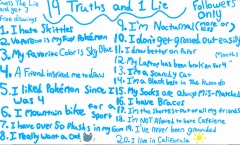 Guess The Lie
and get 3
Free drawings
19 Truths and 1 Lie
Followers
only
1. I hate Skittles
2. Vaporeon is my Fav Pokémon
3. My Favorite Color is Sky Blue
4. A Friend inspired me to draw
5. I liked Pokémon Since I
was 4
6. I mountain bike for a
Sport
7. I have over 50 Plushs in my Room
8. I really want a Cat
9. I'm Nocturnal
10. I don't get grossed out easily
11. I draw better on Paper
12. My Laptop has been broken for
Months
13. I'm a Scaredy Cat
14. I'm a Black belt in Tae kwon do
15. My Socks are always Mis-Matched
16. I have Braces
17. I'm the Shortest out of all my friends
18. I'm NOT Allowed to have Caffeine
19. I've never been grounded
20. I live in California